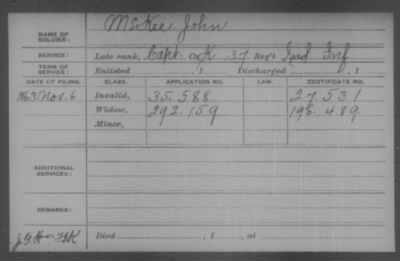 NAME OF SOLDIER: McKee, John
SERVICE: Late rank, Capt. Co. K, 37 Reg't Ind Inf
TERM OF SERVICE: Enlisted , 1 Discharged , 1
DATE OF FILING. CLASS. APPLICATION NO. LAW. CERTIFICATE NO.
1863 Nov. 6 Invalid, 35.588 27531
Widow, 292.159 198.489
Minor,
ADDITIONAL SERVICES:
REMARKS:
Died , 1 , at